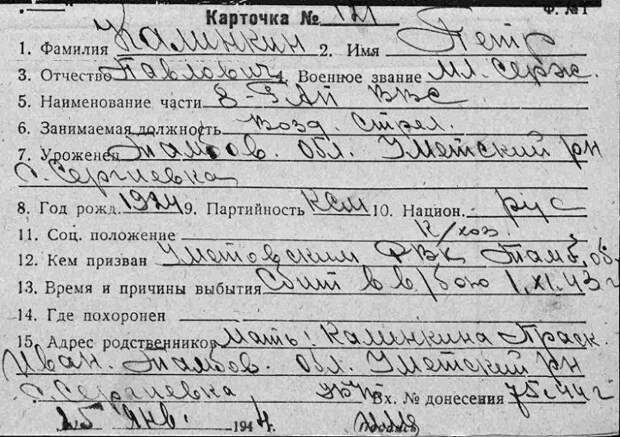 Карточка № 121 Ф. №1
1. Фамилия Калинкин 2. Имя Петр
3. Отчество Павлович 4. Военное звание мл. серж.
5. Наименование части ВВС
6. Занимаемая должность Возд. стрел.
7. Уроженец Тамбов. обл. Уметский рн
с. Сергиевка
8. Год рожд. 1924 9. Партийность КСМ 10. Национ. рус
11. Соц. положение к/хоз
12. Кем призван Уметовским РВК Тамб. об.
13. Время и причины выбытия Сбит в в/бою 1.XI.43 г
14. Где похоронен
15. Адрес родственников Мать: Калинкина Праск.
Иван. Тамбов. обл. Уметский рн
с. Сергиевка Вх. № донесения 75.44 г
25 янв. 1944 г. Подпись